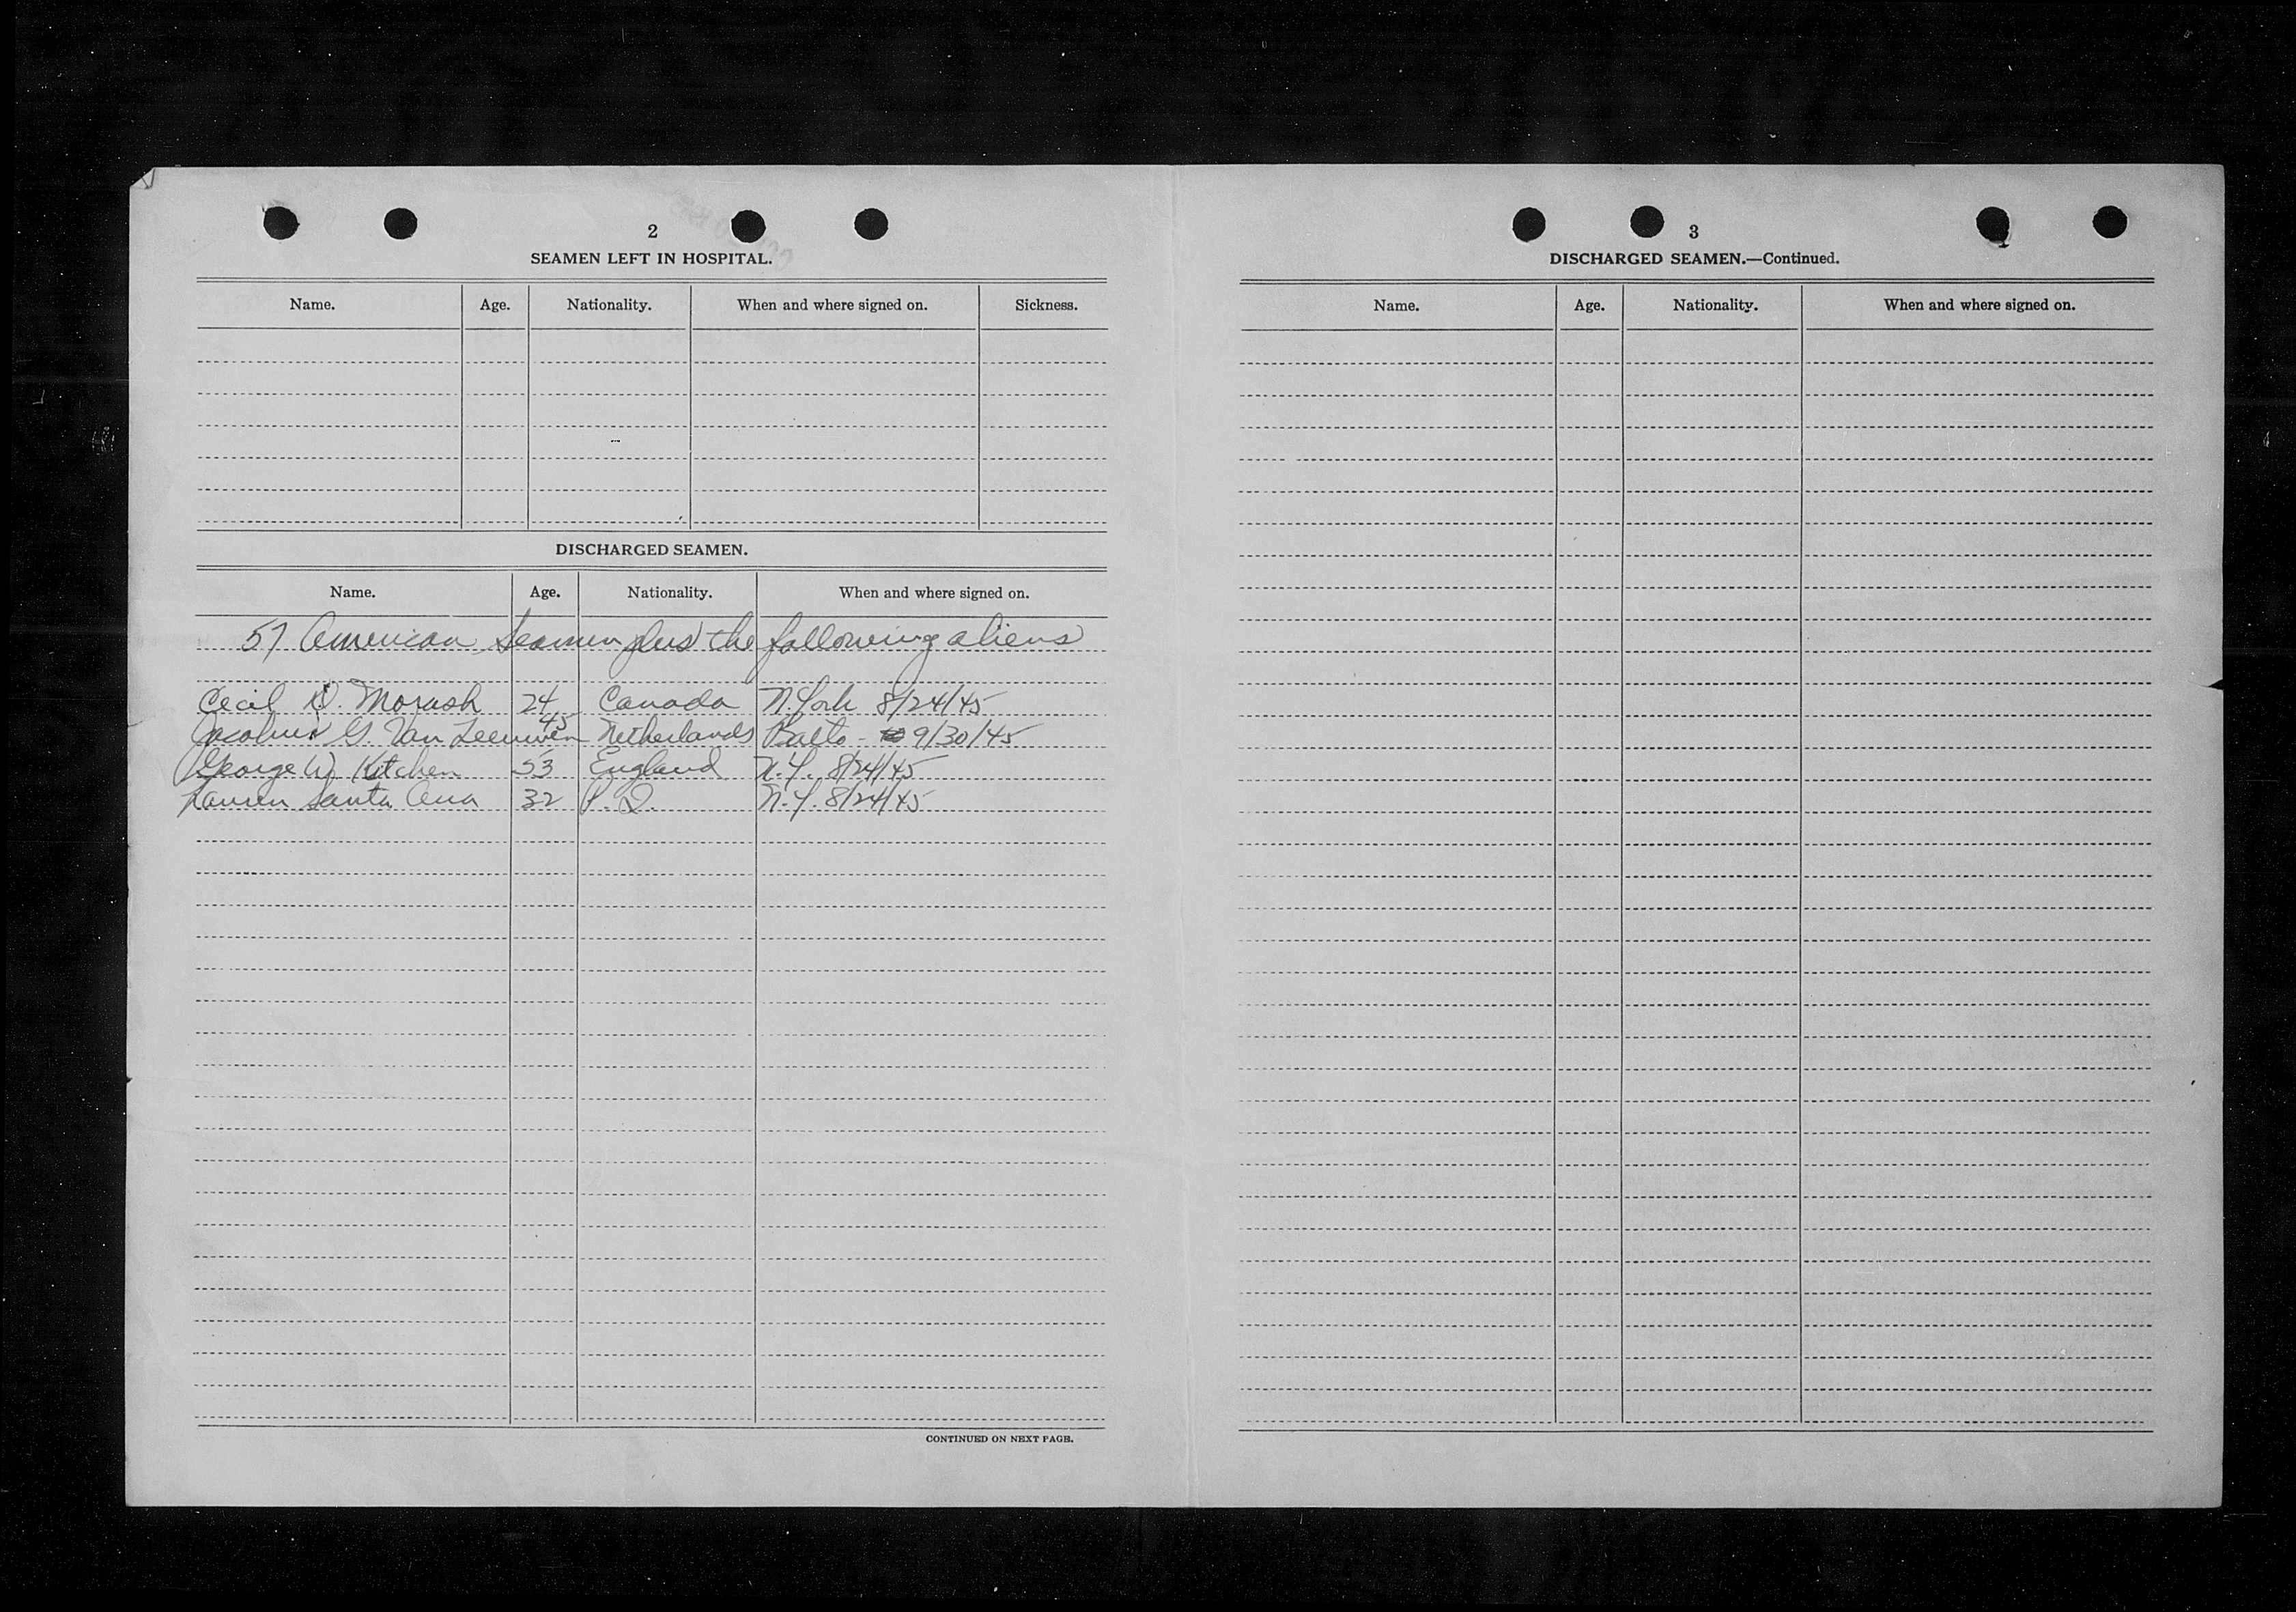 2
SEAMEN LEFT IN HOSPITAL.
Name. Age. Nationality. When and where signed on. Sickness.
DISCHARGED SEAMEN.
Name. Age. Nationality. When and where signed on.
57 American Seamen plus the following aliens
Cecil D. Morash 24 Canada N. York 8/24/45
Jacobus G. Van Leeuwen 45 Netherlands Balto - 9/30/45
George W. Kitchen 53 England N.Y. 8/24/45
Santa Ana 32 P. I. N.Y. 8/24/45
CONTINUED ON NEXT PAGE.
3
DISCHARGED SEAMEN.—Continued.
Name. Age. Nationality. When and where signed on.